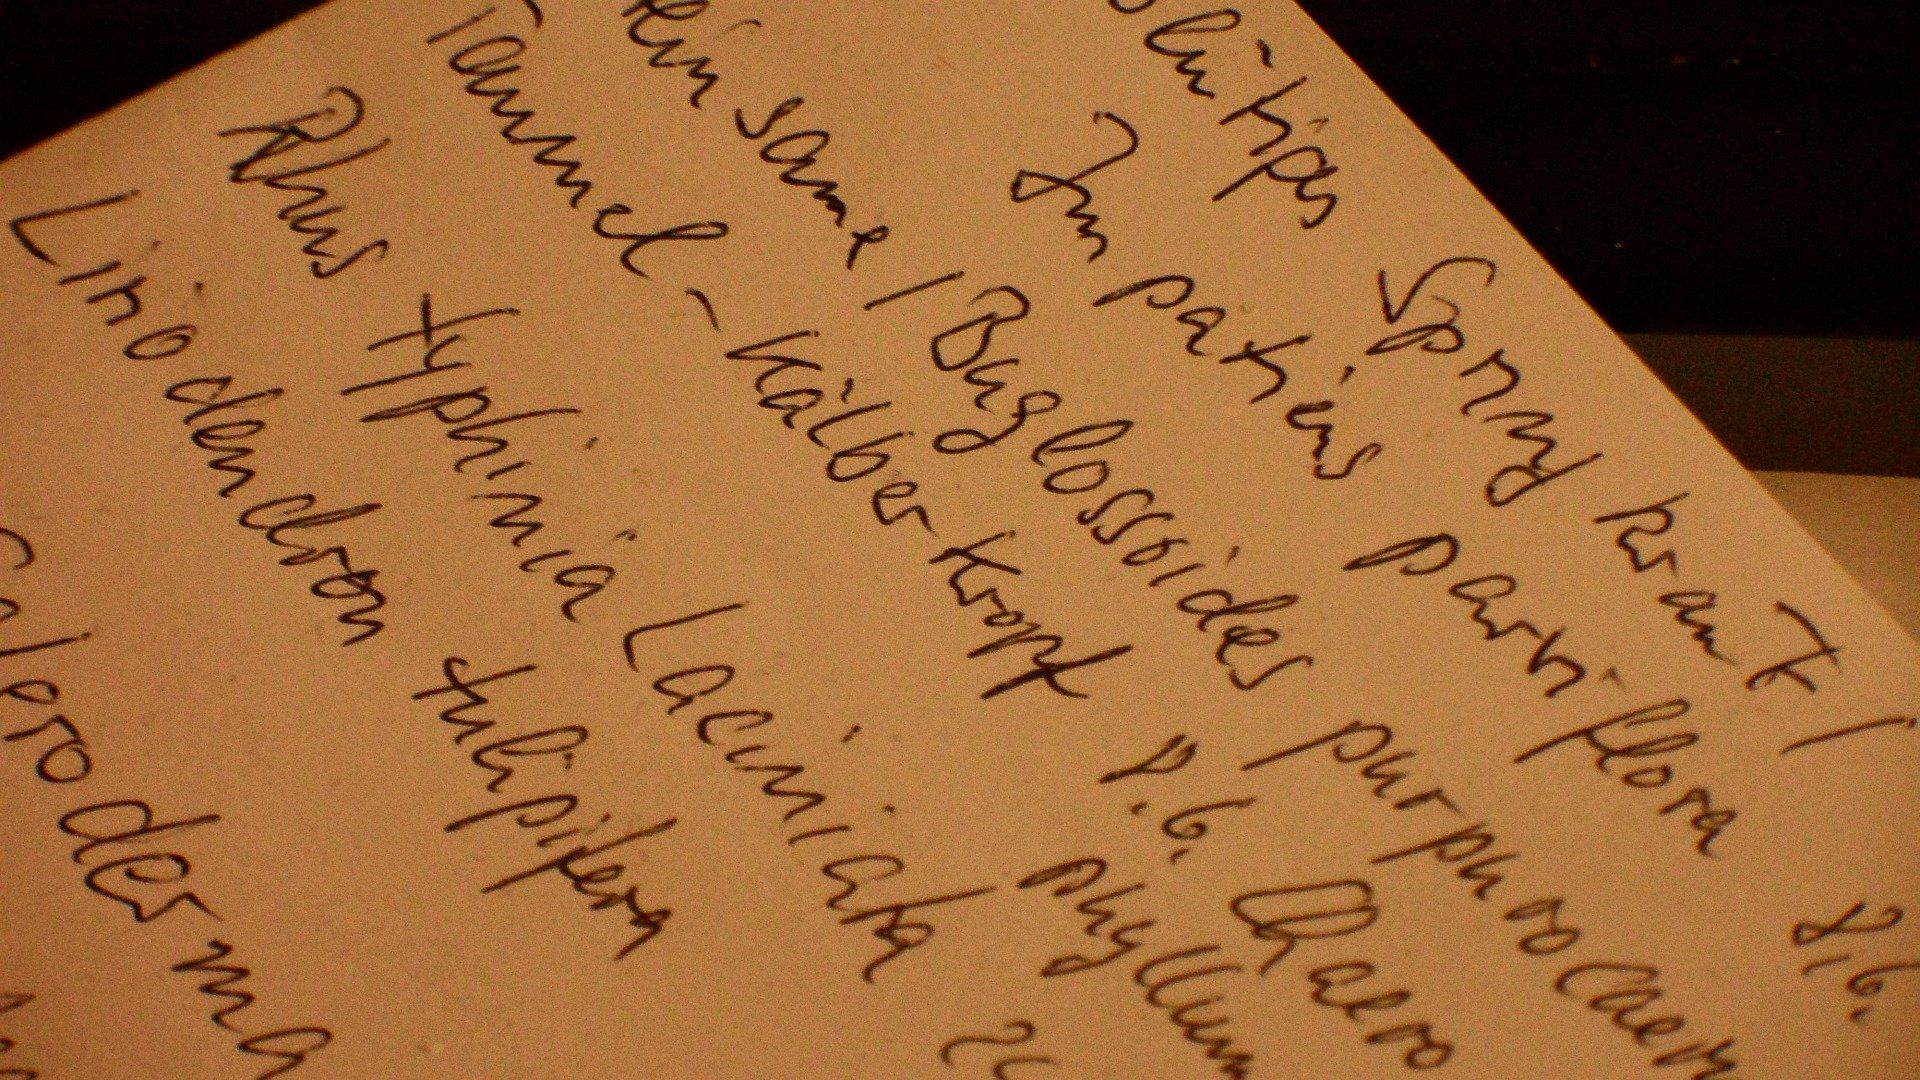 blütiges Springkraut /
Impatiens parviflora 8.6.
einsame / Buglossoides purpurocaer
Taumel-Kälberkropf 8.6. Chaero
phyllum
Rhus typhina Laciniata
Liriodendron tulipifera
Scleroderma